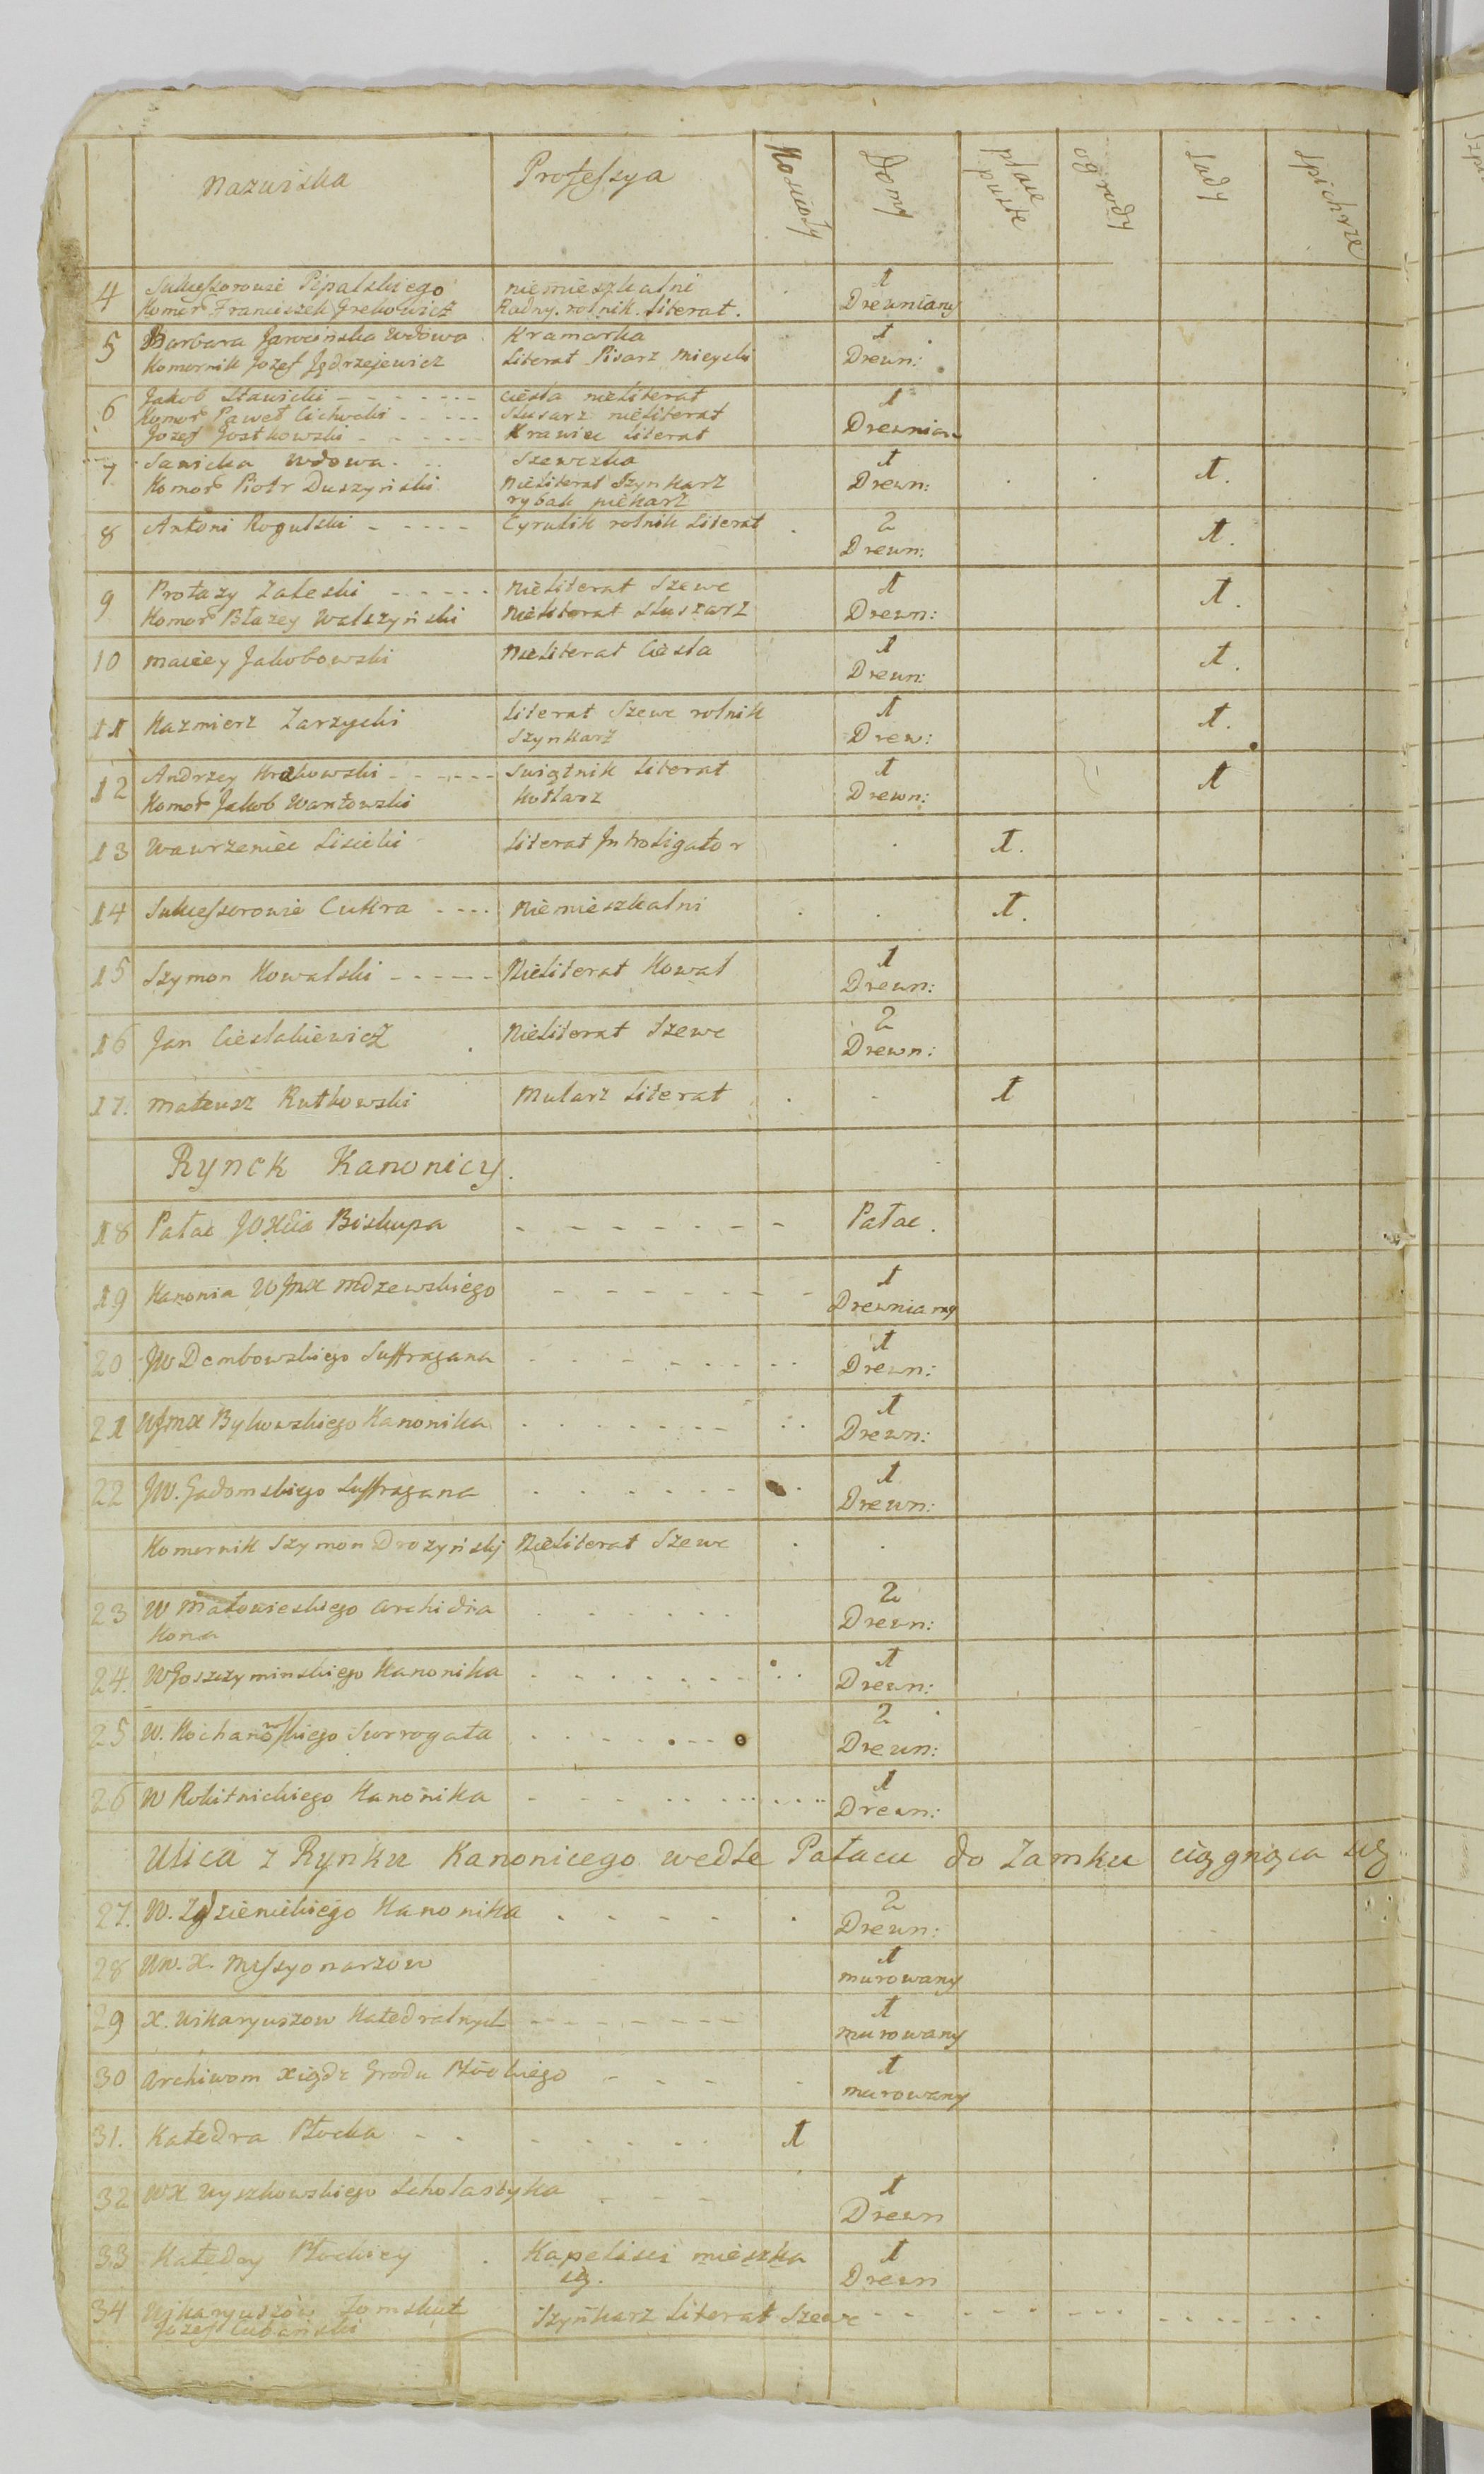 Nazwiska Professya Kościoły Domy place puste ogrody Sady Spichrze
4 Sukcessorowie Pipalskiego niemieszkalni 1
Komor Franciszek Grekowicz Radny. rolnik. Literat. Drewniany
5 Barbara Jarocińska Wdowa Kramarka 1
Komornik Jozef Jędrzejewicz Literat Pisarz Mieyski Drewn:
6 Jakob Stawicki cieśla nieliterat 1
Komor Paweł Cichocki Slusarz nieliterat
Jozef Jostkowski Krawiec Literat Drewnian
7 Sawicka Wdowa Szewczka 1
Komor Piotr Duszyński Nieliterat Szynkarz Drewn: 1.
rybak piekarz
8 Antoni Rogulski Cyrulik rolnik Literat 2 1.
Drewn:
9 Protazy Zaleski Nieliterat Szewc 1 1.
Komor Błazey Walszyński Nieliterat Sluszarz Drewn:
10 Maciey Jakobowski Nieliterat Ciesla 1 1.
Drewn:
11 Kazmierz Zarzycki Literat Szewc rolnik 1 1.
Szynkarz Drew:
12 Andrzey Krakowski Swiątnik Literat 1 1
Komor Jakob Wartowski Kotlarz Drewn:
13 Wawrzeniec Lisicki Literat Introligator 1.
14 Sukcessorowie Cukra Niemieszkalni 1.
15 Szymon Kowalski Nieliterat Kowal 1
Drewn:
16 Jan Cieslakiewicz Nieliterat Szewc 2
Drewn:
17. Mateusz Rutkowski Mularz Literat 1
Rynek Kanonicy.
18 Pałac JOXcia Biskupa Pałac.
19 Kanonia WJmX Mdzewskiego 1
Drewniany
20 JW Dembowskiego Suffragana 1
Drewn:
21 WJmX Bykowskiego Kanonika 1
Drewn:
22 JW. Gadomskiego Suffragana 1
Drewn:
Komornik Szymon Drozyńskj Nieliterat Szewc
23 W Małowieskiego Archidia 2
Kona Drewn:
24. W Goszczyminskiego Kanonika 1
Drewn:
25 W. Kochanowskiego Surrogata 2
Drewn:
26 W Rokitnickiego Kanonika 1
Drewn:
Ulica z Rynku Kanonicego wedle Pałacu do Zamku ciągnąca się
27. W. Zdzienickiego Kanonika 2
Drewn:
28 WW. X. Missyonarzow 1
murowany
29 X. Wikaryuszow Katedralnych 1
murowany
30 Archiwom xiądz Grodu Płockiego 1
murowany
31. Katedra Płocka 1
32 WX Wyszkowskiego Scholastyka 1
Drewn
33 Katedry Płockiey Kapelisci mieszka 1
ią. Drewn
34 Wikaryuszow
Jozef Cubański Szynkarz Literat Szewc